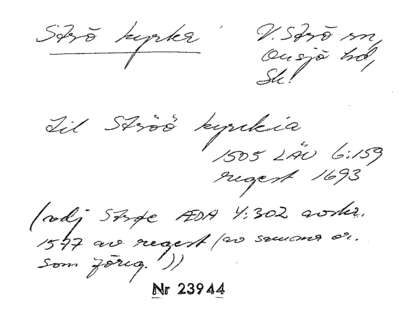 Strö kyrka
V. Strö sn,
Onsjö hd,
Sk.
til Ströö kyrckia
1505 LÄU 6:159
regest 1693
(vdj Strøe ÆDA 4:302 avskr.
1577 av regest (av samma or.
som föreg.))
Nr 23944